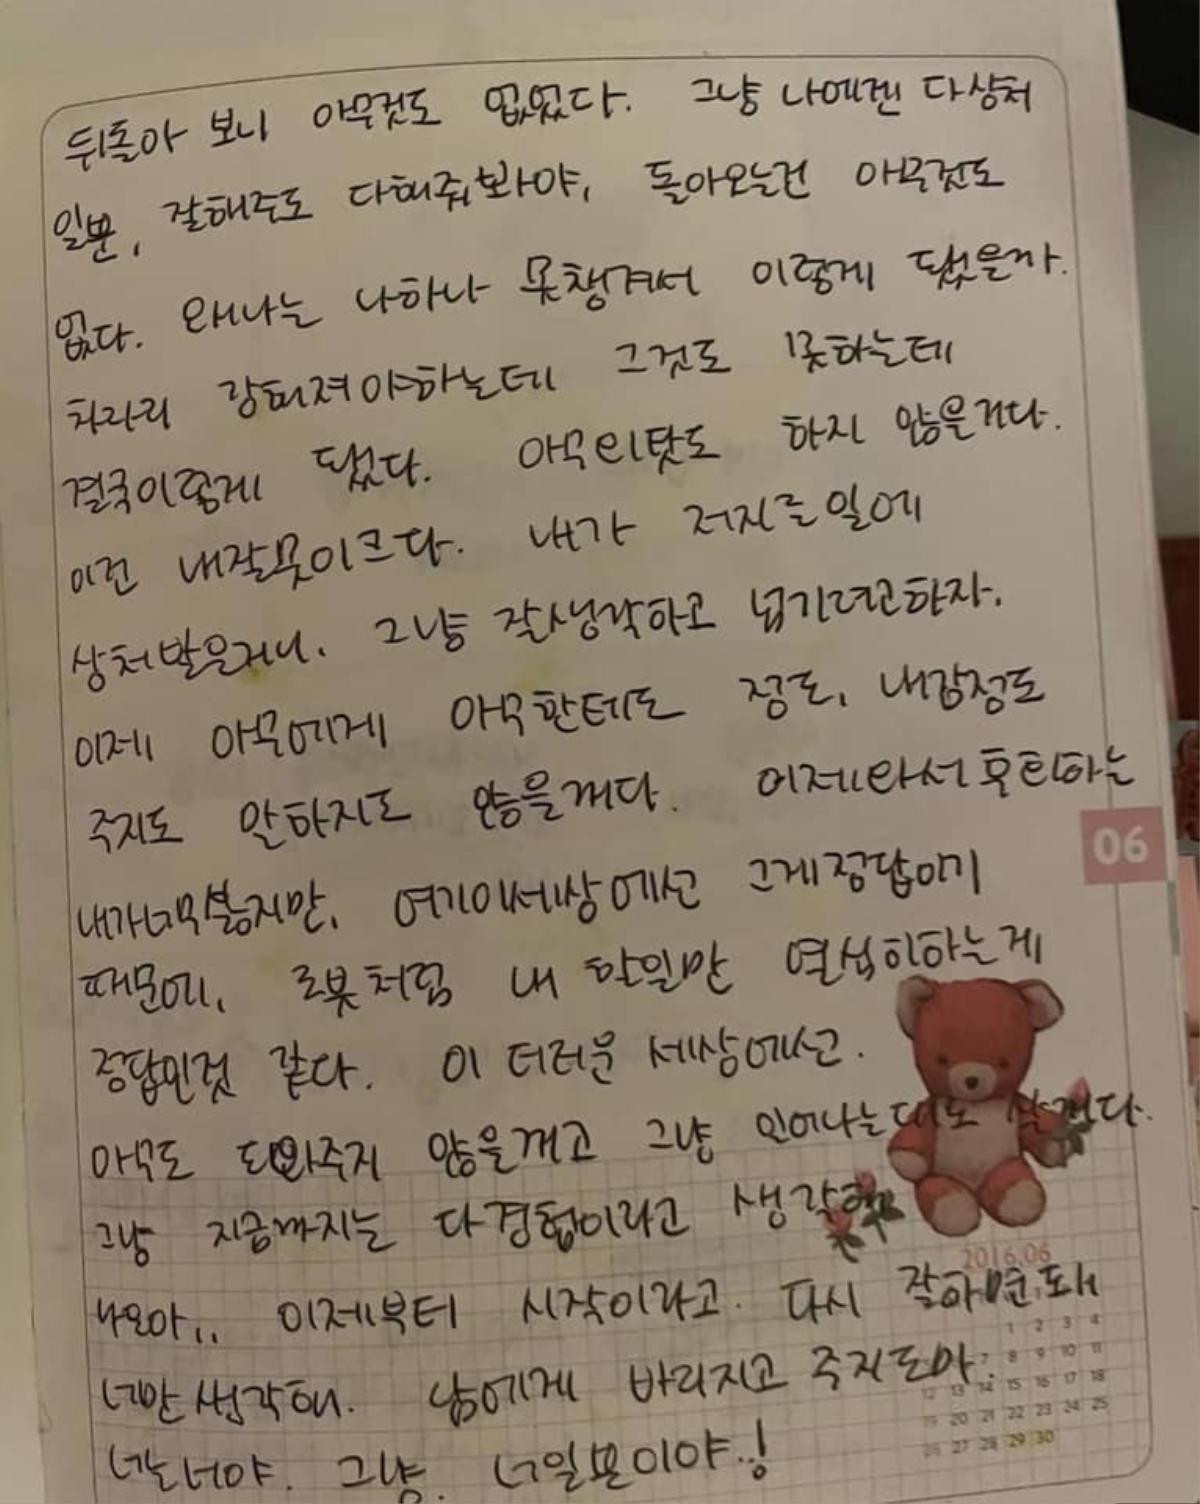 뒤돌아 보니 아무것도 없었다. 그냥 나에겐 다상처
일뿐, 잘해주도 다해줘봐야, 돌아오는건 아무것도
없다. 왜나는 나하나 못챙겨서 이렇게 됐을까.
차라리 강해져야하는데 그것도 못하는데
결국이렇게 됐다. 아무의탓도 하지 않을거다.
이건 내잘못이크다. 내가 저지른일에
상처받은거니. 그냥 잘생각하고 넘기려고하자.
이제 아무에게 아무한테도 정도, 내감정도
주지도 말하지도 않을꺼다. 이제와서후회하는
내가너무싫지만, 여기이세상에선 그게정답이기
때문에, 로봇처럼 내 할일만 열심히하는게
정답인것 같다. 이 더러운 세상에선.
아무도 도와주지 않을꺼고 그냥 살꺼다.
그냥 지금까지는 다경험이라고 생각해
나은아.. 이제부터 시작이라고. 다시 잘하면돼
너만생각해. 남에게 바라지고 주지도마.
너는너야. 그냥. 너일뿐이야..!
06
2016.06
1 2 3 4
7 8 9 10 11
12 13 14 15 16 17 18
19 20 21 22 23 24 25
26 27 28 29 30